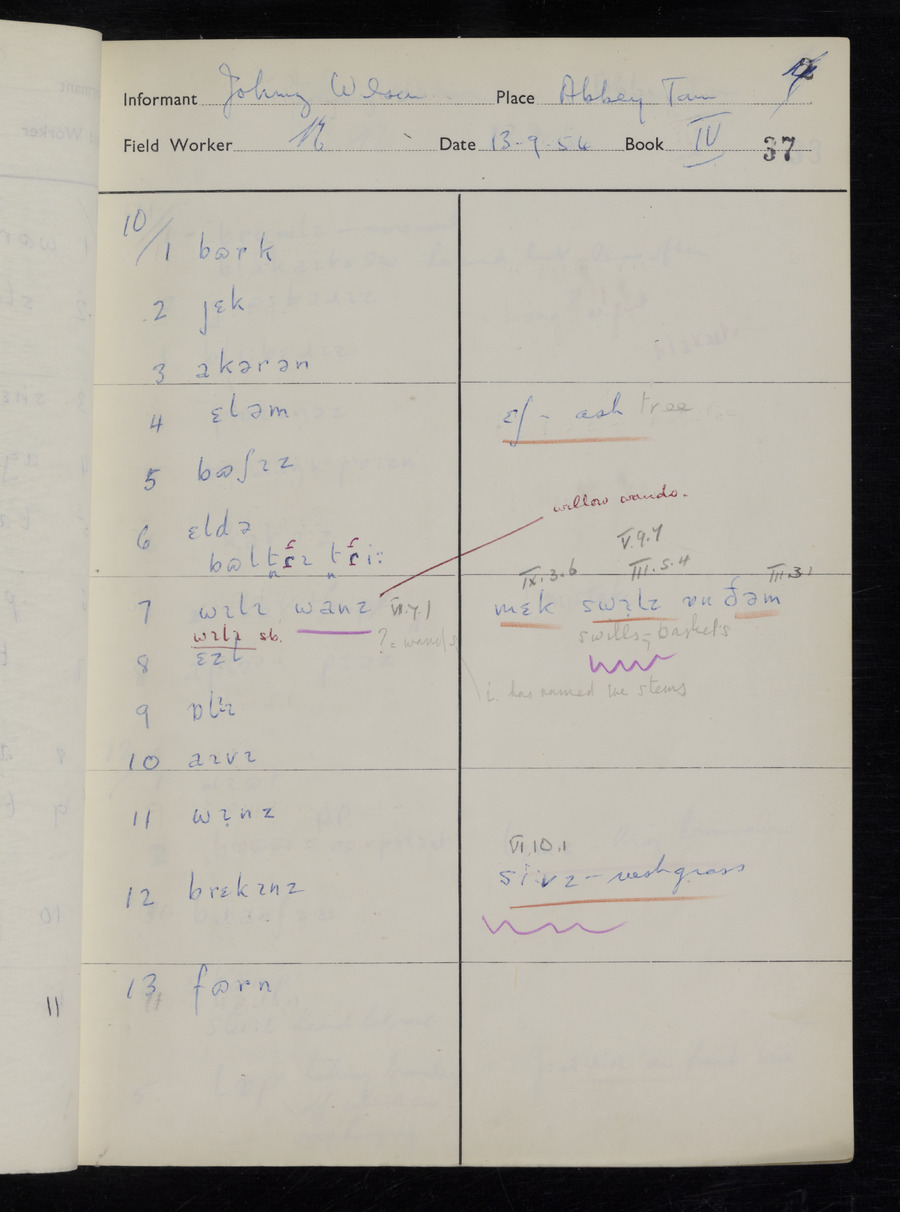 Informant Johnny Wilson Place Abbey Town
Field Worker Date 13-9-54 Book IV 37
10/1 bɵrk
2 jɛk
3 akərən
4 ɛləm
ɛʃ - ash tree
5 bɵʃɪz
6 ɛldə
bɵltrɪ tri:
willow wands.
V.9.7
IX.3.6 III.5.4 III.3.1
7 wɪlɪ wanz VI.7.1
mɛk swɪlz ɒn ðəm
wɪlɪ sb.
?= wands
swills = baskets
8 ɛzl
i. has named the stems
9 ɒlɪ
10 aɪvɪ
11 wɪnz
12 brɛkɪnz
VI.10.1
si:vz - reshgrass
13 fɵrn
11